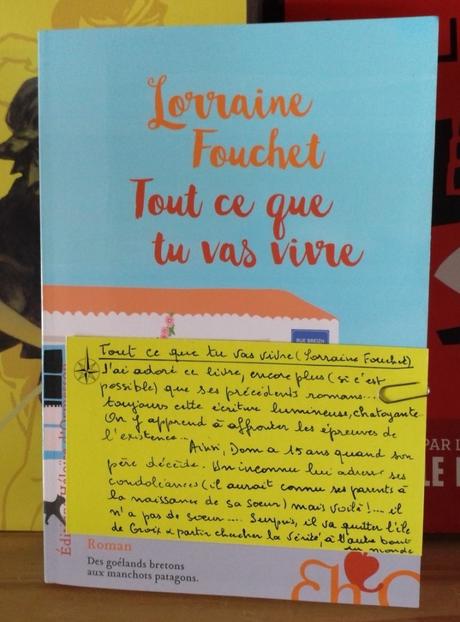 Lorraine
Fouchet
Tout ce que
tu vas vivre
RUE BREIZH
Tout ce que tu vas vivre (Lorraine Fouchet)
J'ai adoré ce livre, encore plus (si c'est
possible) que ses précédents romans...
toujours cette écriture lumineuse, chatoyante.
On y apprend à affronter les épreuves de
l'existence...
Ainsi, Dom a 15 ans quand son
père décède. Un inconnu lui adresse ses
condoléances (il aurait connu ses parents à
la naissance de sa soeur) mais voilà!... il
n'a pas de soeur.... Surpris, il va quitter l'île
de Groix & partir chercher la vérité, à l'autre bout
du monde
Roman
Des goélands bretons
aux manchots patagons.
PAR L
LE